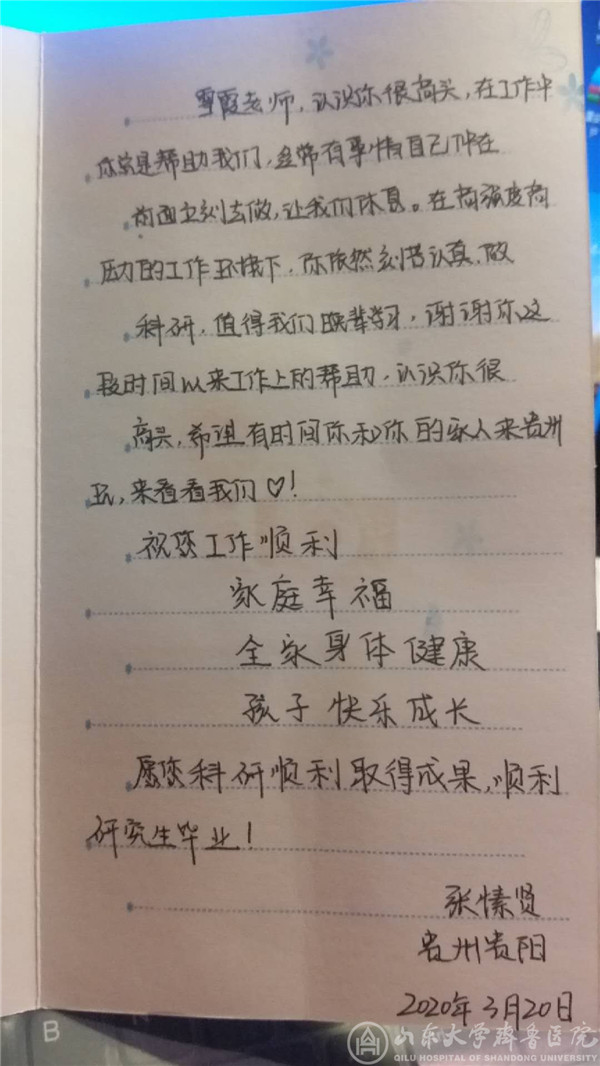 雪霞老师，认识你很高兴，在工作中
你总是帮助我们，经常有事情自己冲在
前面立刻去做，让我们休息。在高强度高
压力的工作环境下，你依然刻苦认真，做
科研，值得我们晚辈学习，谢谢你这
段时间以来工作上的帮助，认识你很
高兴，希望有时间你和你的家人来贵州
玩，来看看我们♡！
祝您工作顺利
家庭幸福
全家身体健康
孩子快乐成长
愿您科研顺利取得成果，顺利
研究生毕业！
张愫贤
贵州贵阳
2020年3月20日
B
山东大学齐鲁医院
QILU HOSPITAL OF SHANDONG UNIVERSITY